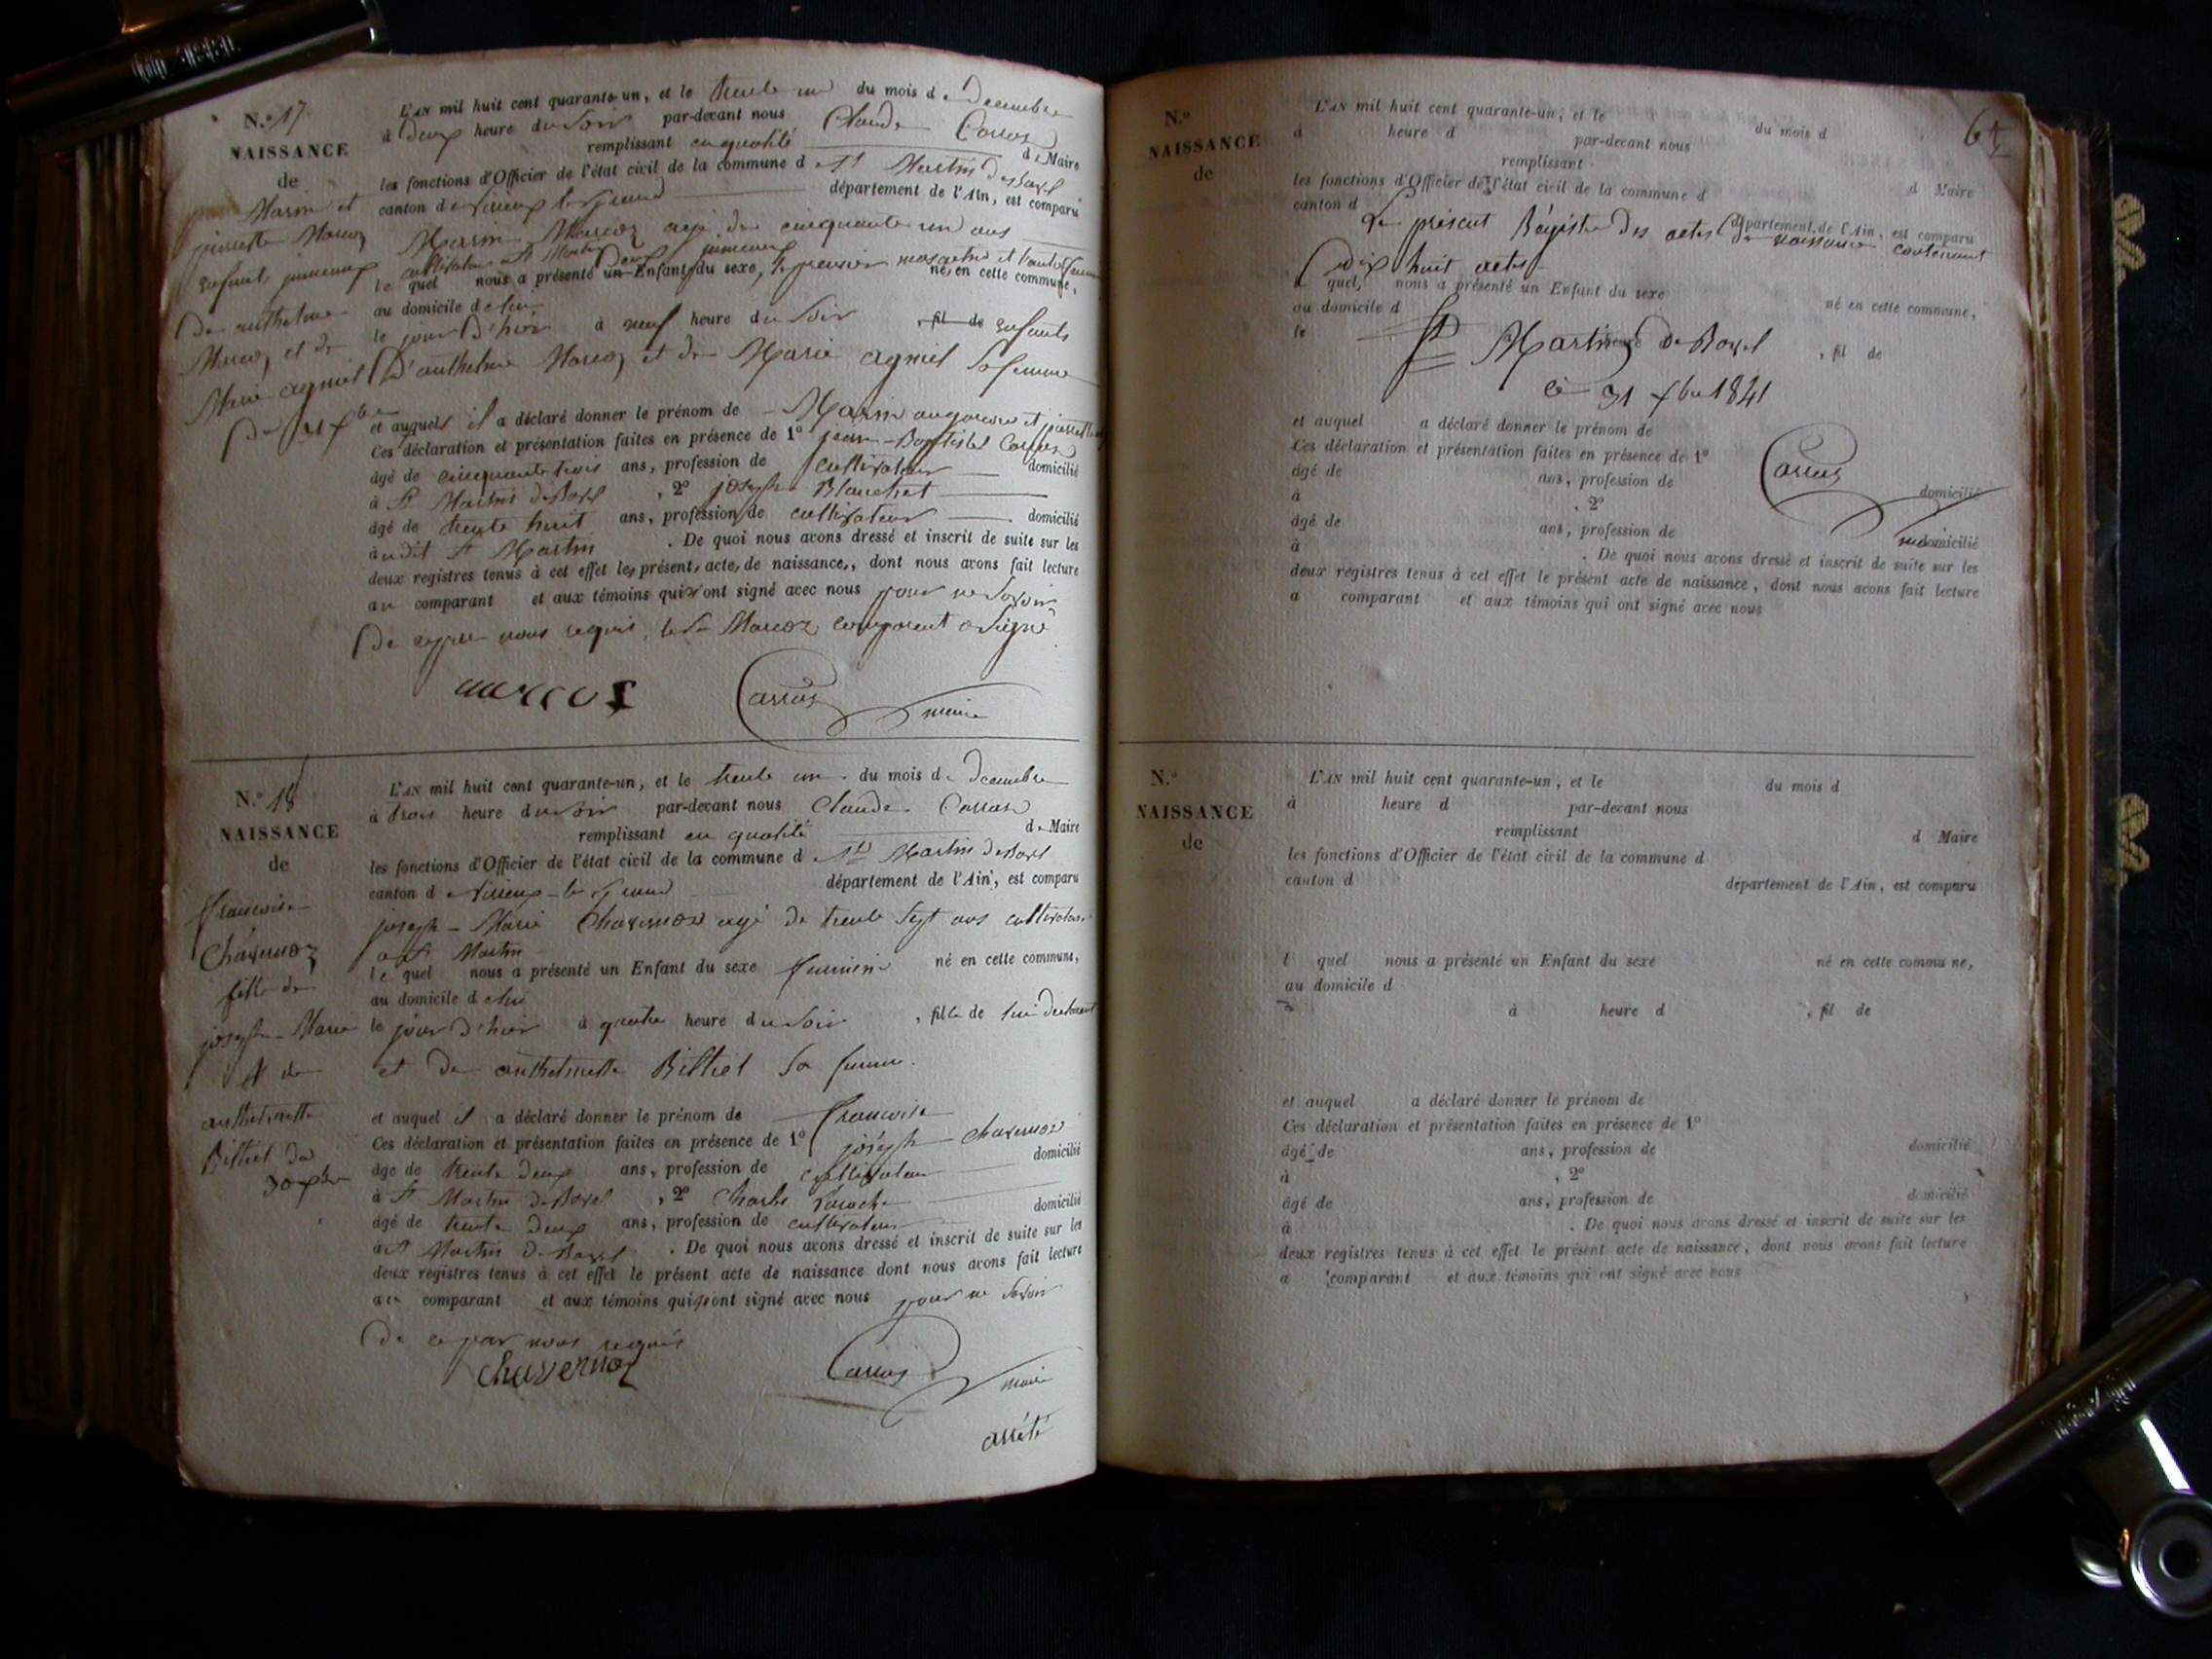 N.º 17
NAISSANCE
de
Marin et
pierrette Marcoz
enfants jumeaux
de anthelme
Marcoz et de
Marie agniel
L'AN mil huit cent quarante-un, et le trente un du mois de Decembre
à deux heure du soir par-devant nous Claude
remplissant en qualité de Maire
les fonctions d'Officier de l'état civil de la commune d St Martin de Bavel
canton de Virieux le grand département de l'Ain, est comparu
Marin Marcoz agé de cinquante un ans
cultivateur a St Martin Deux jumeaux
le quel nous a présenté un Enfant du sexe, le premier masculin et l'autre né, en cette commune,
au domicile de lui
le jour d'hier à neuf heure du soir , fil de enfants
D'anthelme Marcoz et de Marie agniel sa femme
et auquels il a déclaré donner le prénom de Marin et pierrette
Ces déclaration et présentation faites en présence de 1º jean-Baptiste
âgé de cinquante trois ans, profession de cultivateur domicilié
à St Martin de Bavel , 2º joseph Blanchet
âgé de trente huit ans, profession de cultivateur domicilié
à udit St Martin . De quoi nous avons dressé et inscrit de suite sur les
deux registres tenus à cet effet les présents actes de naissance, dont nous avons fait lecture
au comparant et aux témoins qui ont signé avec nous pour ne savoir
De ce par nous requis, le Marcoz comparant a signé
marcoz
maire
N.º 18
NAISSANCE
de
francoise
Chavernoz
fille de
joseph-Marie
et de
anthelmette
Billiet du
30 xbre
L'AN mil huit cent quarante-un, et le trente un du mois de Decembre
à trois heure du soir par-devant nous Claude
remplissant en qualité de Maire
les fonctions d'Officier de l'état civil de la commune d St Martin de Bavel
canton de Virieux-le grand département de l'Ain, est comparu
joseph-Marie Chavernoz agé de trente sept ans cultivateur
a St Martin
le quel nous a présenté un Enfant du sexe feminin né en cette commune,
au domicile de lui
le jour d'hier à quatre heure du soir , fille de lui declarant
et de anthelmette Billiet sa femme.
et auquel il a déclaré donner le prénom de francoise
Ces déclaration et présentation faites en présence de 1º joseph chavernoz
âgé de trente deux ans, profession de cultivateur domicilié
à St Martin de Bavel , 2º Charles
âgé de trente deux ans, profession de cultivateur domicilié
à St Martin de Bavel . De quoi nous avons dressé et inscrit de suite sur les
deux registres tenus à cet effet le présent acte de naissance dont nous avons fait lecture
au comparant et aux témoins qui ont signé avec nous pour ne savoir
De ce par nous requis
chavernoz
maire
arrété
64
N.º
NAISSANCE
de
L'AN mil huit cent quarante-un, et le du mois d
à heure d par-devant nous
remplissant d Maire
les fonctions d'Officier de l'état civil de la commune d
canton d département de l'Ain, est comparu
Le présent Régistre des actes de naissance contenant
dix huit actes
l quel, nous a présenté un Enfant du sexe né en cette commune,
au domicile d
le , fil de
St Martin de Bavel
ce 31 xbre 1841
et auquel a déclaré donner le prénom de
Ces déclaration et présentation faites en présence de 1º
âgé de ans, profession de domicilié
à , 2º
âgé de ans, profession de domicilié
à . De quoi nous avons dressé et inscrit de suite sur les
deux registres tenus à cet effet le présent acte de naissance, dont nous avons fait lecture
a comparant et aux témoins qui ont signé avec nous
N.º
NAISSANCE
de
L'AN mil huit cent quarante-un, et le du mois d
à heure d par-devant nous
remplissant d Maire
les fonctions d'Officier de l'état civil de la commune d
canton d département de l'Ain, est comparu
l quel nous a présenté un Enfant du sexe né en cette commune,
au domicile d
à heure d , fil de
et auquel a déclaré donner le prénom de
Ces déclaration et présentation faites en présence de 1º
âgé de ans, profession de domicilié
à , 2º
âgé de ans, profession de domicilié
à . De quoi nous avons dressé et inscrit de suite sur les
deux registres tenus à cet effet le présent acte de naissance, dont nous avons fait lecture
a comparant et aux témoins qui ont signé avec nous